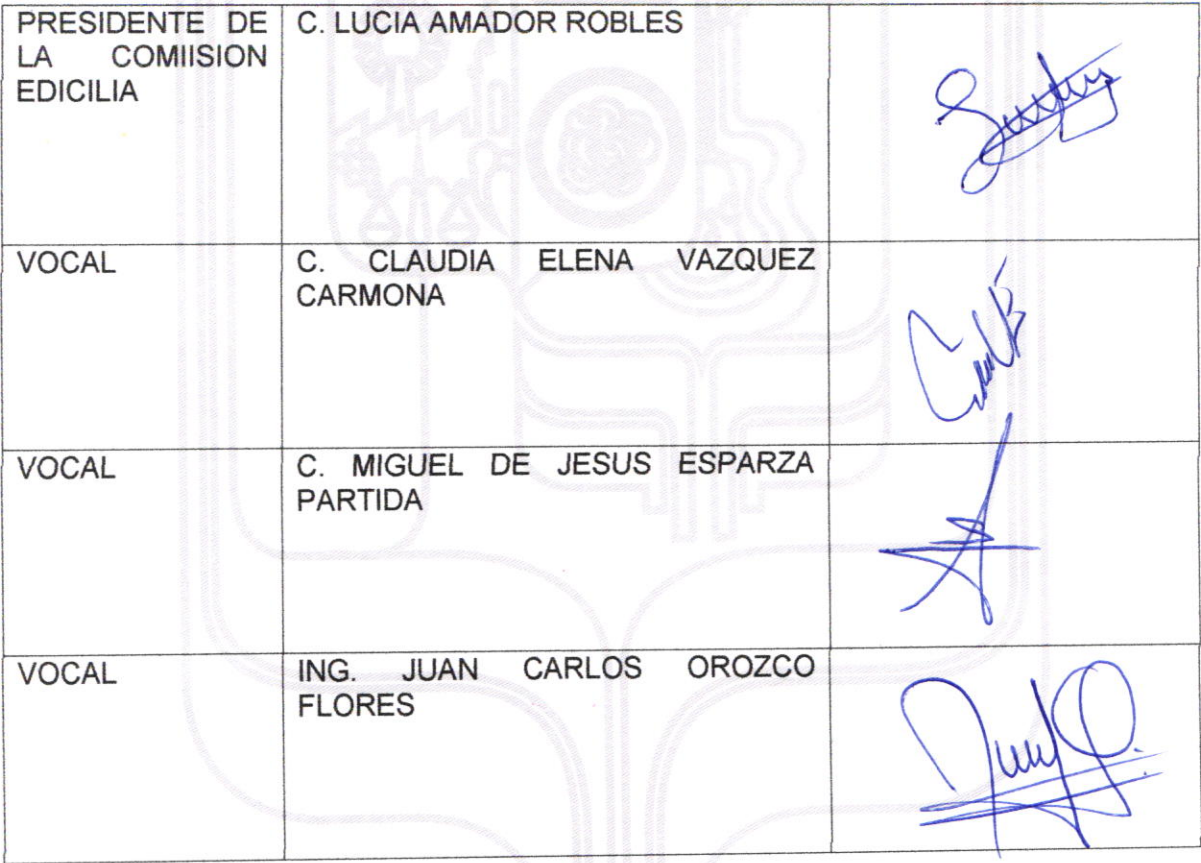 PRESIDENTE DE
LA COMIISION
EDICILIA
C. LUCIA AMADOR ROBLES
VOCAL
C. CLAUDIA ELENA VAZQUEZ
CARMONA
VOCAL
C. MIGUEL DE JESUS ESPARZA
PARTIDA
VOCAL
ING. JUAN CARLOS OROZCO
FLORES